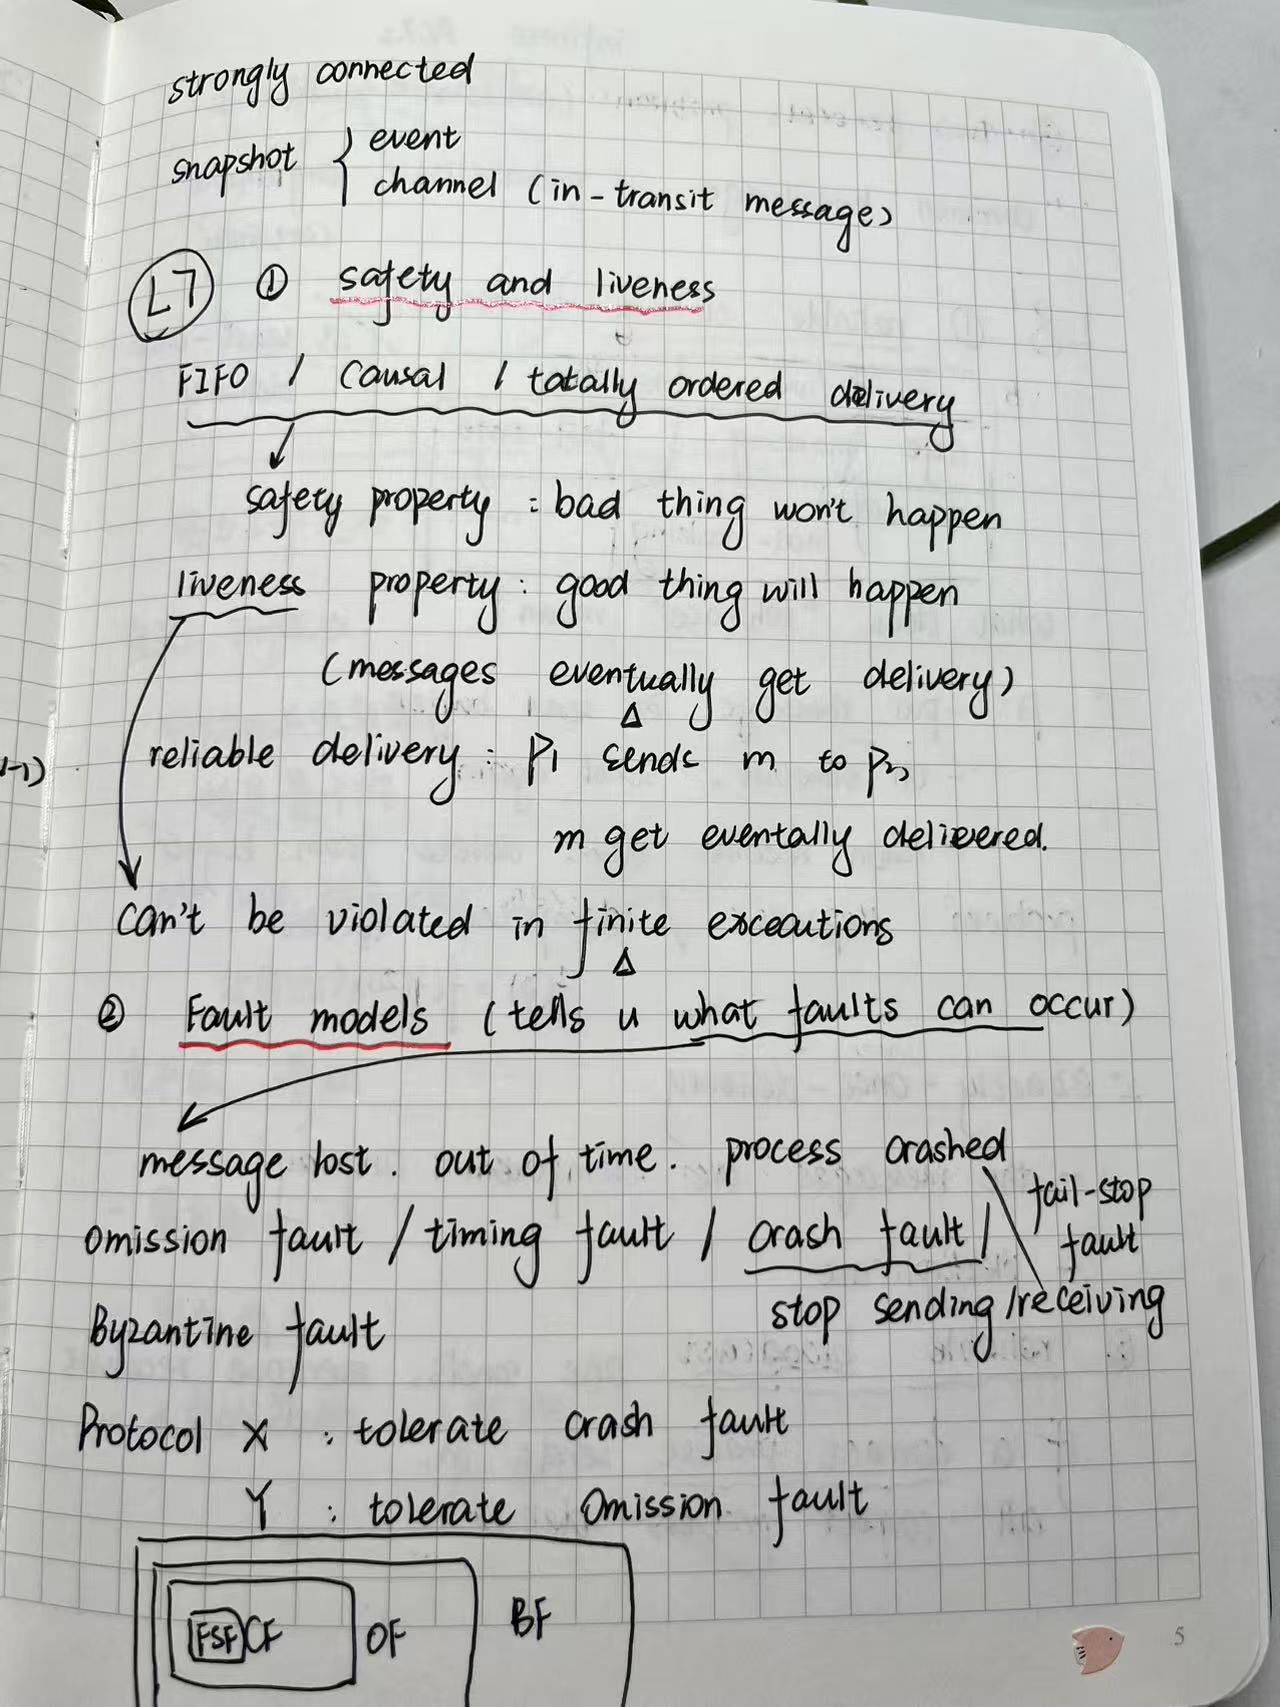 strongly connected
snapshot { event
channel (in-transit message)
L7 ① safety and liveness
FIFO / causal / totally ordered delivery
safety property : bad thing won't happen
liveness property : good thing will happen
(messages eventually get delivery)
Δ
reliable delivery : P1 sends m to P2,
m get eventally delivered.
can't be violated in finite exceautions
Δ
② Fault models (tells u what faults can occur)
message lost. out of time. process crashed
omission fault / timing fault / crash fault / fail-stop
fault
stop sending/receiving
Byzantine fault
Protocol X : tolerate crash fault
Y : tolerate omission fault
FSF CF OF BF
5